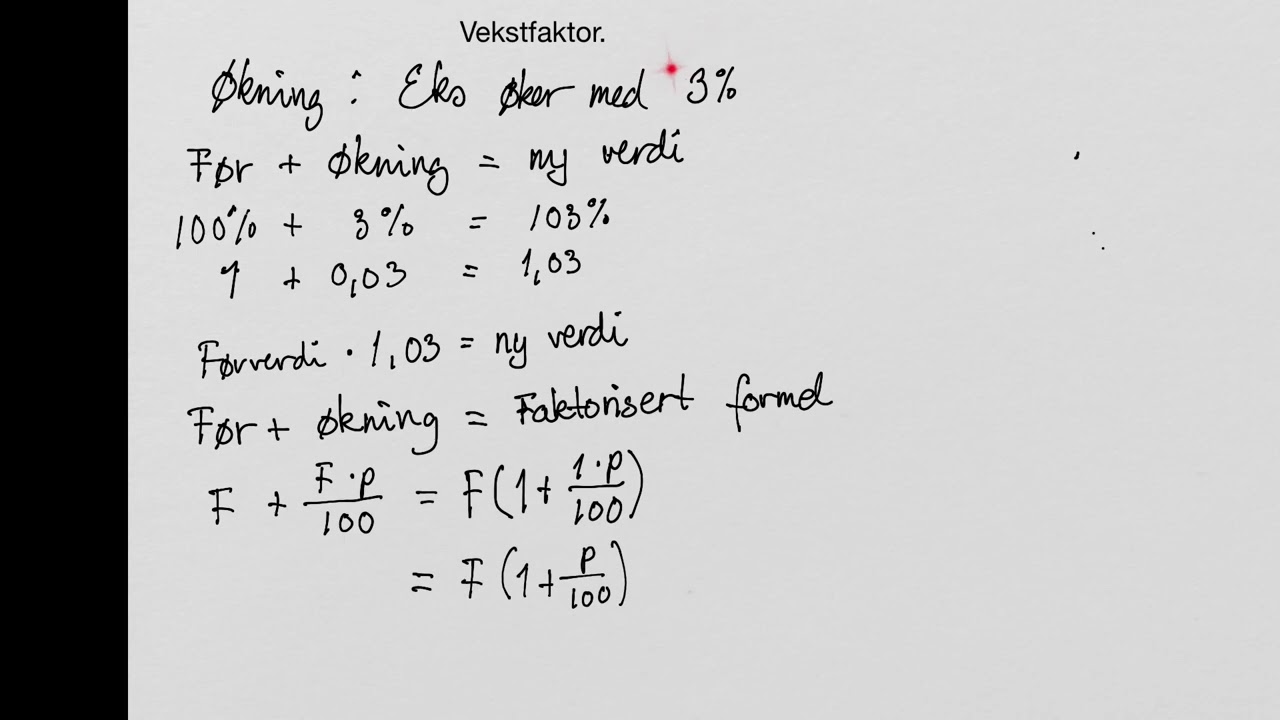 Vekstfaktor.
Økning : Eks øker med 3%
Før + Økning = ny verdi
100% + 3% = 103%
1 + 0,03 = 1,03
Førverdi · 1,03 = ny verdi
Før + økning = Faktorisert formel
F + F·p/100 = F(1+ 1·p/100)
= F(1+ p/100)